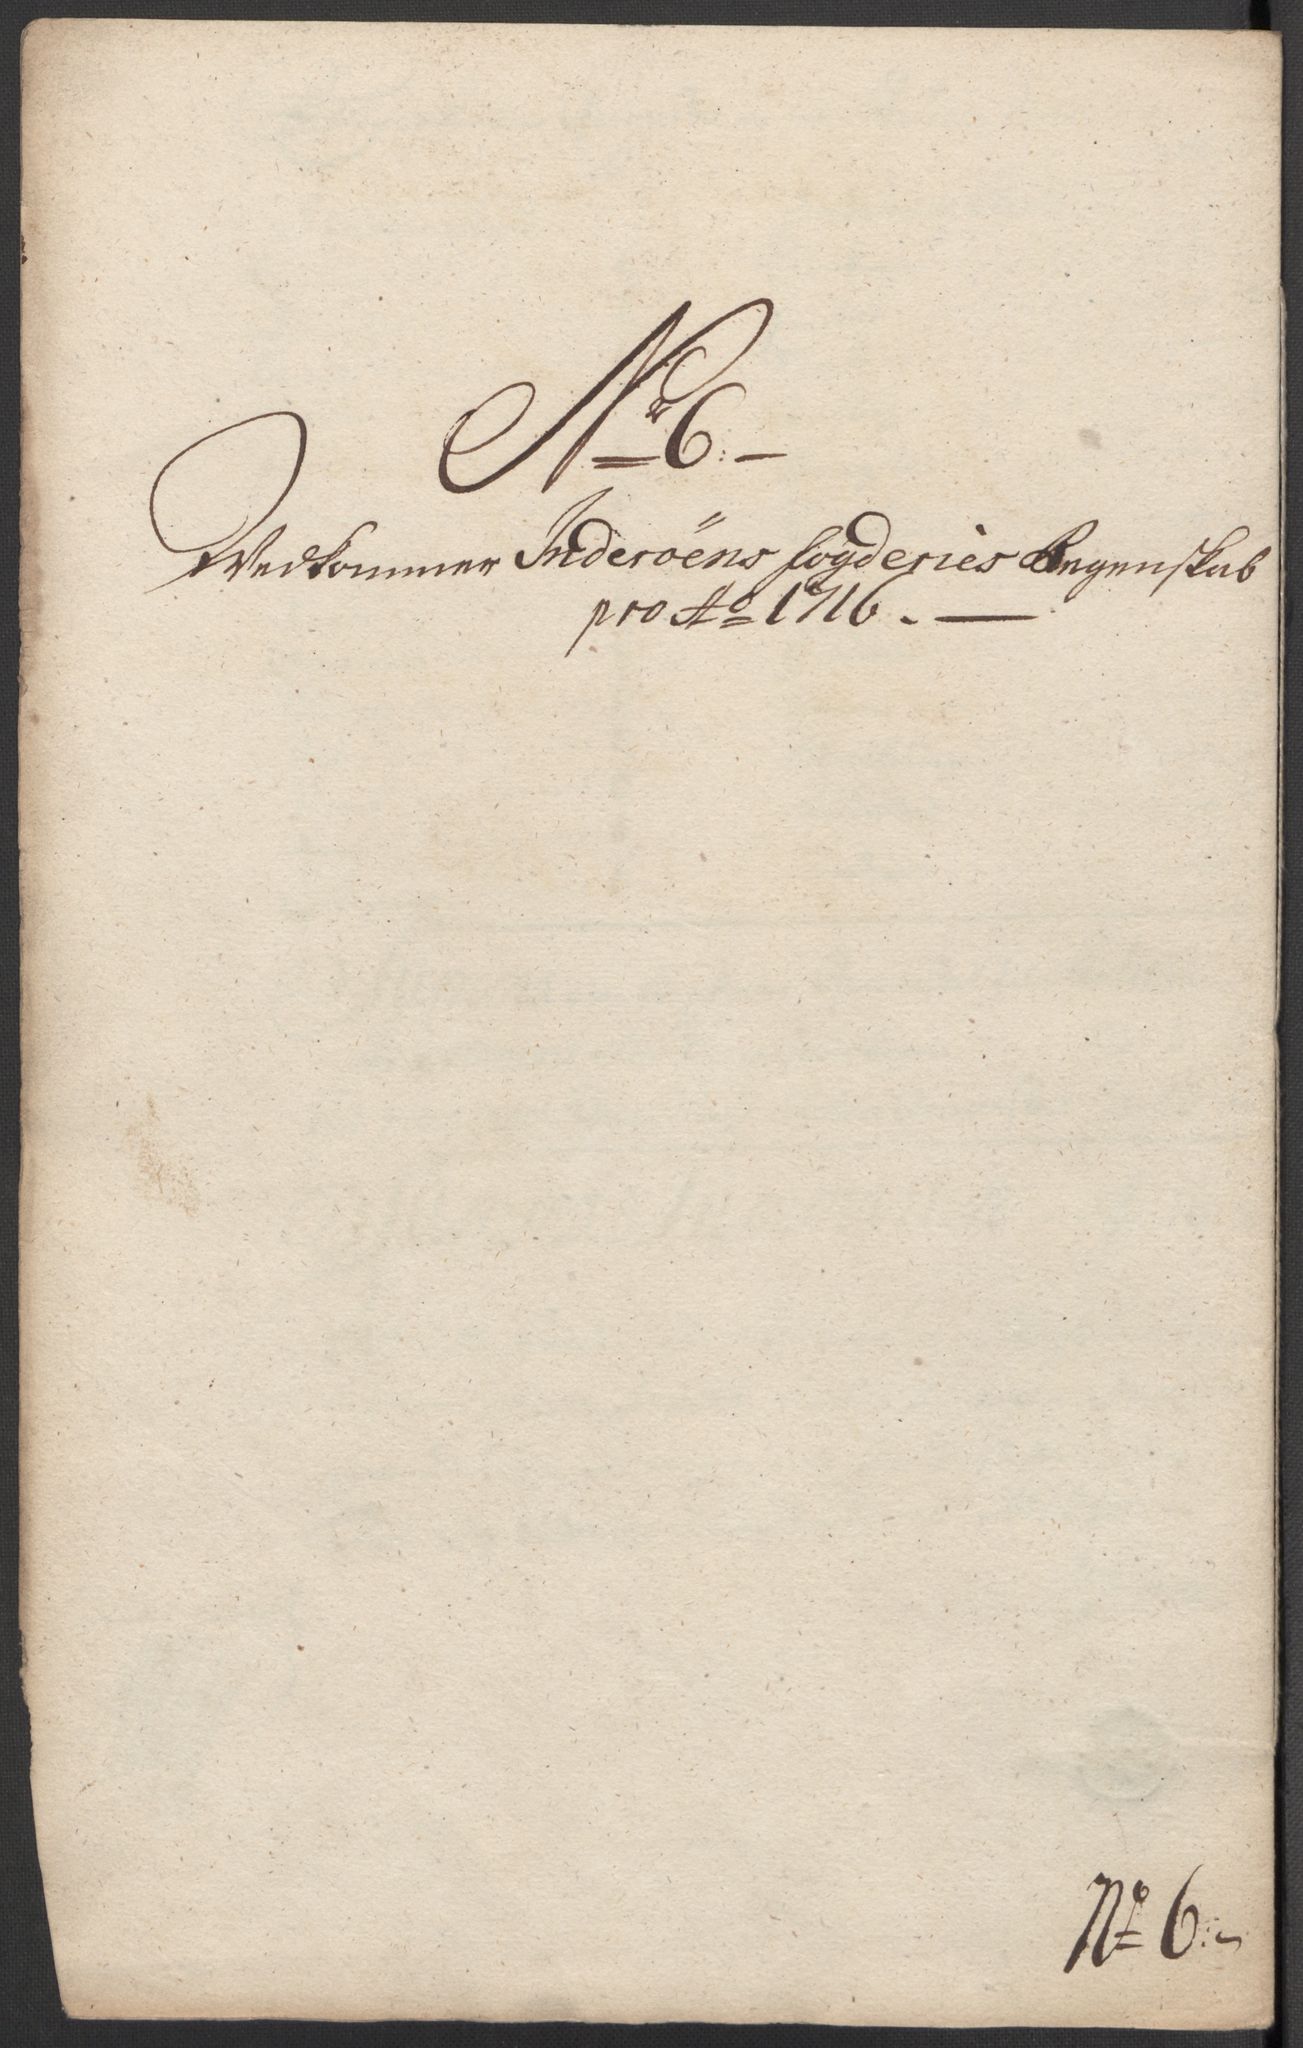 No 6:-
Vedkommer Inderöens fogderies Regenskab
pro Ao 1716. —
No 6:-